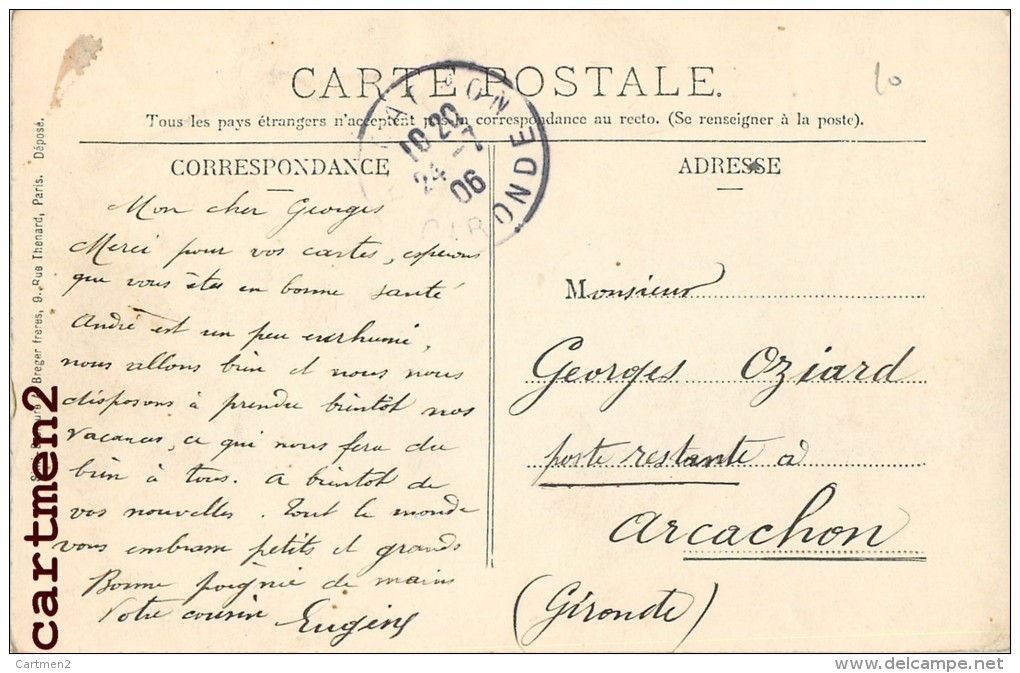 CARTE POSTALE.
Tous les pays étrangers n'acceptent pas la correspondance au recto. (Se renseigner à la poste).
CORRESPONDANCE
Mon cher Georges
Merci pour vos cartes, espérons
que vous êtes en bonne santé
André est un peu enrhumé,
nous allons bien et nous nous
disposons à prendre bientôt nos
vacances, ce qui nous fera du
bien à tous. A bientôt de
vos nouvelles. Tout le monde
vous embrasse petits et grands
Bonne poignée de mains
Votre cousin Eugène
ADRESSE
Monsieur
Georges Oziard
poste restante à
Arcachon
(Gironde)
10 20
24 7
06
GIRONDE
10
Breger frères, 9, Rue Thénard, Paris. Déposé.
cartmen2
Cartmen2
www.delcampe.net